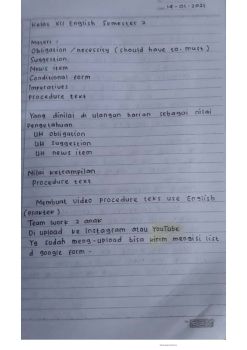 19-01-2021
Kelas XII English Semester 2
Materi :
Obligation / necessity (should have to. must)
Suggestion
News item
Conditional form
Imperatives
Procedure text
Yang dinilai di ulangan harian sebagai nilai
Pengetahuan
UH Obligation
UH Suggestion
UH news item
Nilai keterampilan
Procedure text
Membuat video procedure teks use English
(praktek)
Team work 2 anak
Di upload ke Instagram atau YouTube
Yg sudah meng-upload bisa kirim mengisi list
d google form -